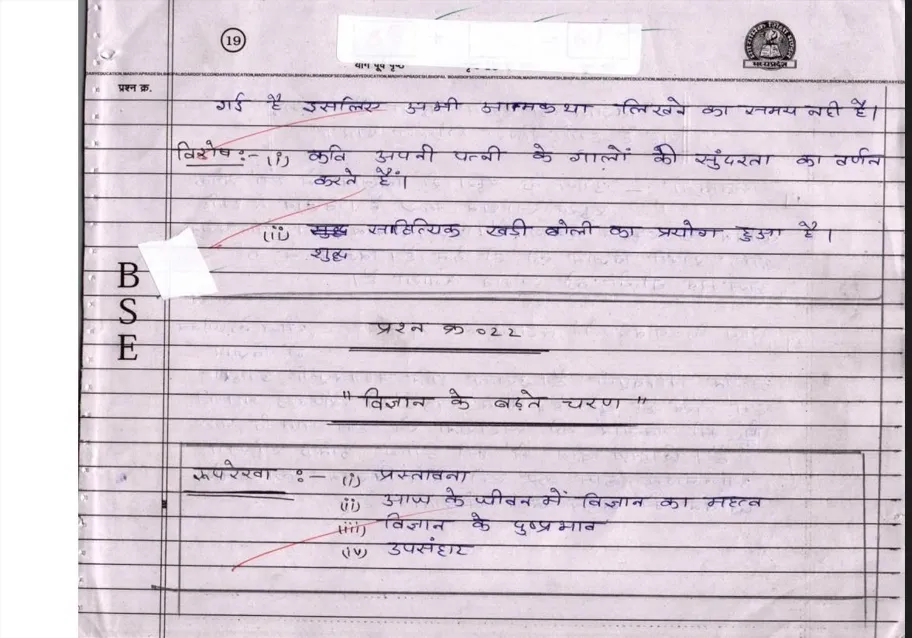 19
याग पूर्व पृष्ठ
प्रश्न क्र.
गई है इसलिए अभी आत्मकथा लिखने का समय नही है।
विशेष:- (i) कवि अपनी पत्नी के गालों की सुंदरता का वर्णन
करते हैं।
(ii) साहित्यिक खड़ी बोली का प्रयोग हुआ है।
शुद्ध
B
S
E
प्रश्न क्र 022
"विज्ञान के बढ़ते चरण"
रूपरेखा :- (i) प्रस्तावना
(ii) आज के जीवन में विज्ञान का महत्व
(iii) विज्ञान के दुष्प्रभाव
(iv) उपसंहार